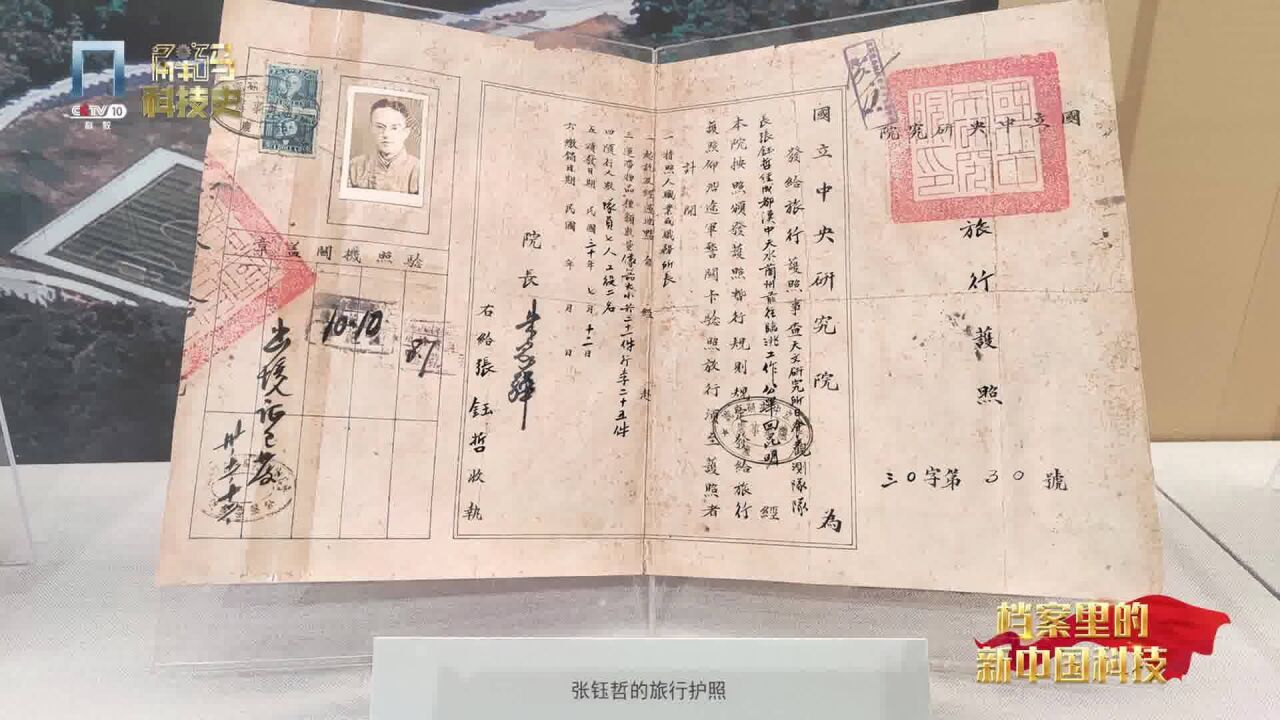 CCTV 10
科教
解码
科技史
國立中央研究院
旅行護照
三〇字第 30 號
國立中央研究院 為
發給旅行護照事查天文研究所日食觀測隊隊
長張鈺哲經成都漢中天水蘭州前往臨洮工作公畢回昆明 經
本院按照頒發護照暫行規則規定發給旅行
護照仰沿途軍警關卡驗照放行須至護照者
計開
一 持照人職業或職務 所長
二 起訖及經過地點 自 經 赴
四 隨行人數 隊員七人工役二名
五 填發日期 民國三十年七月十二日
六 繳銷日期 民國 年 月 日
院長
右給張鈺哲收執
驗照機關蓋章
10.10
出境訖
档案里的
新中国科技
张钰哲的旅行护照